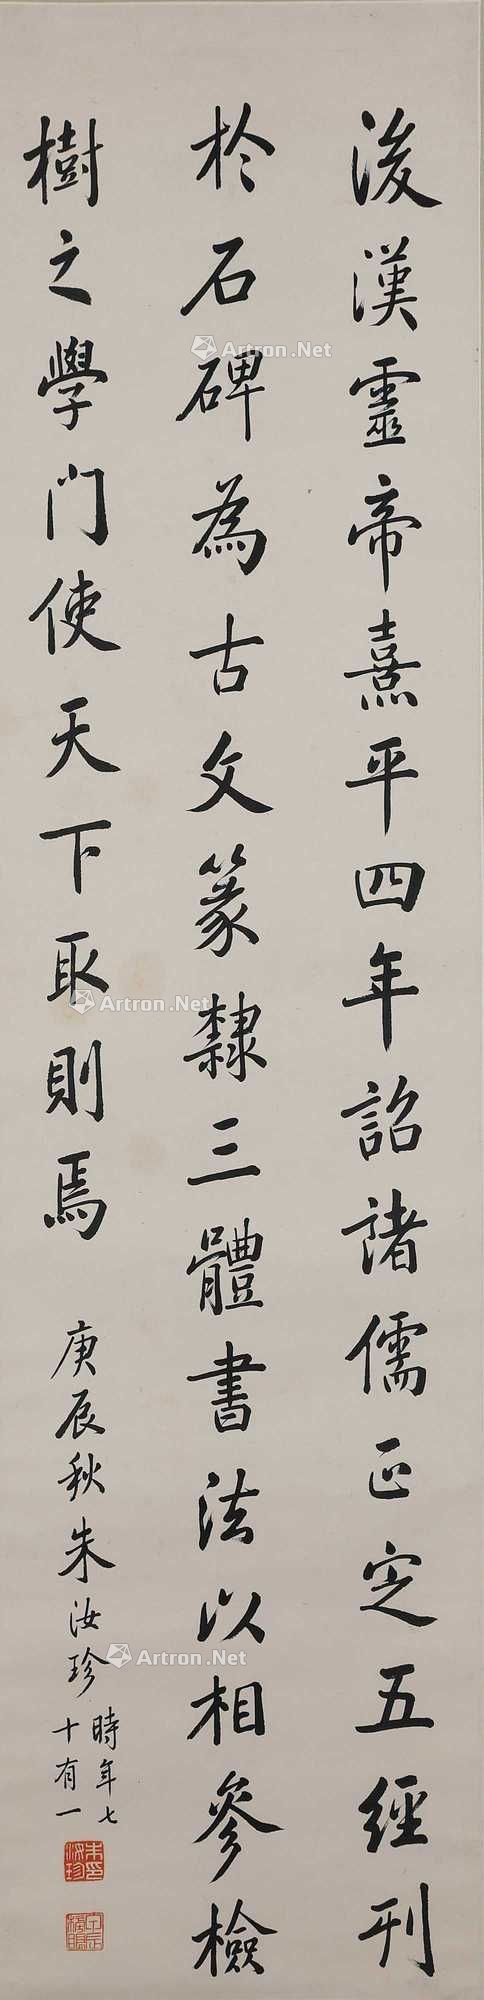 後漢靈帝熹平四年詔諸儒正定五經刊
於石碑為古文篆隸三體書法以相參檢
樹之學門使天下取則焉
庚辰秋朱汝珍
時年七
十有一
朱印汝珍
Artron.Net
Artron.Net
Artron.Net
Artron.Net